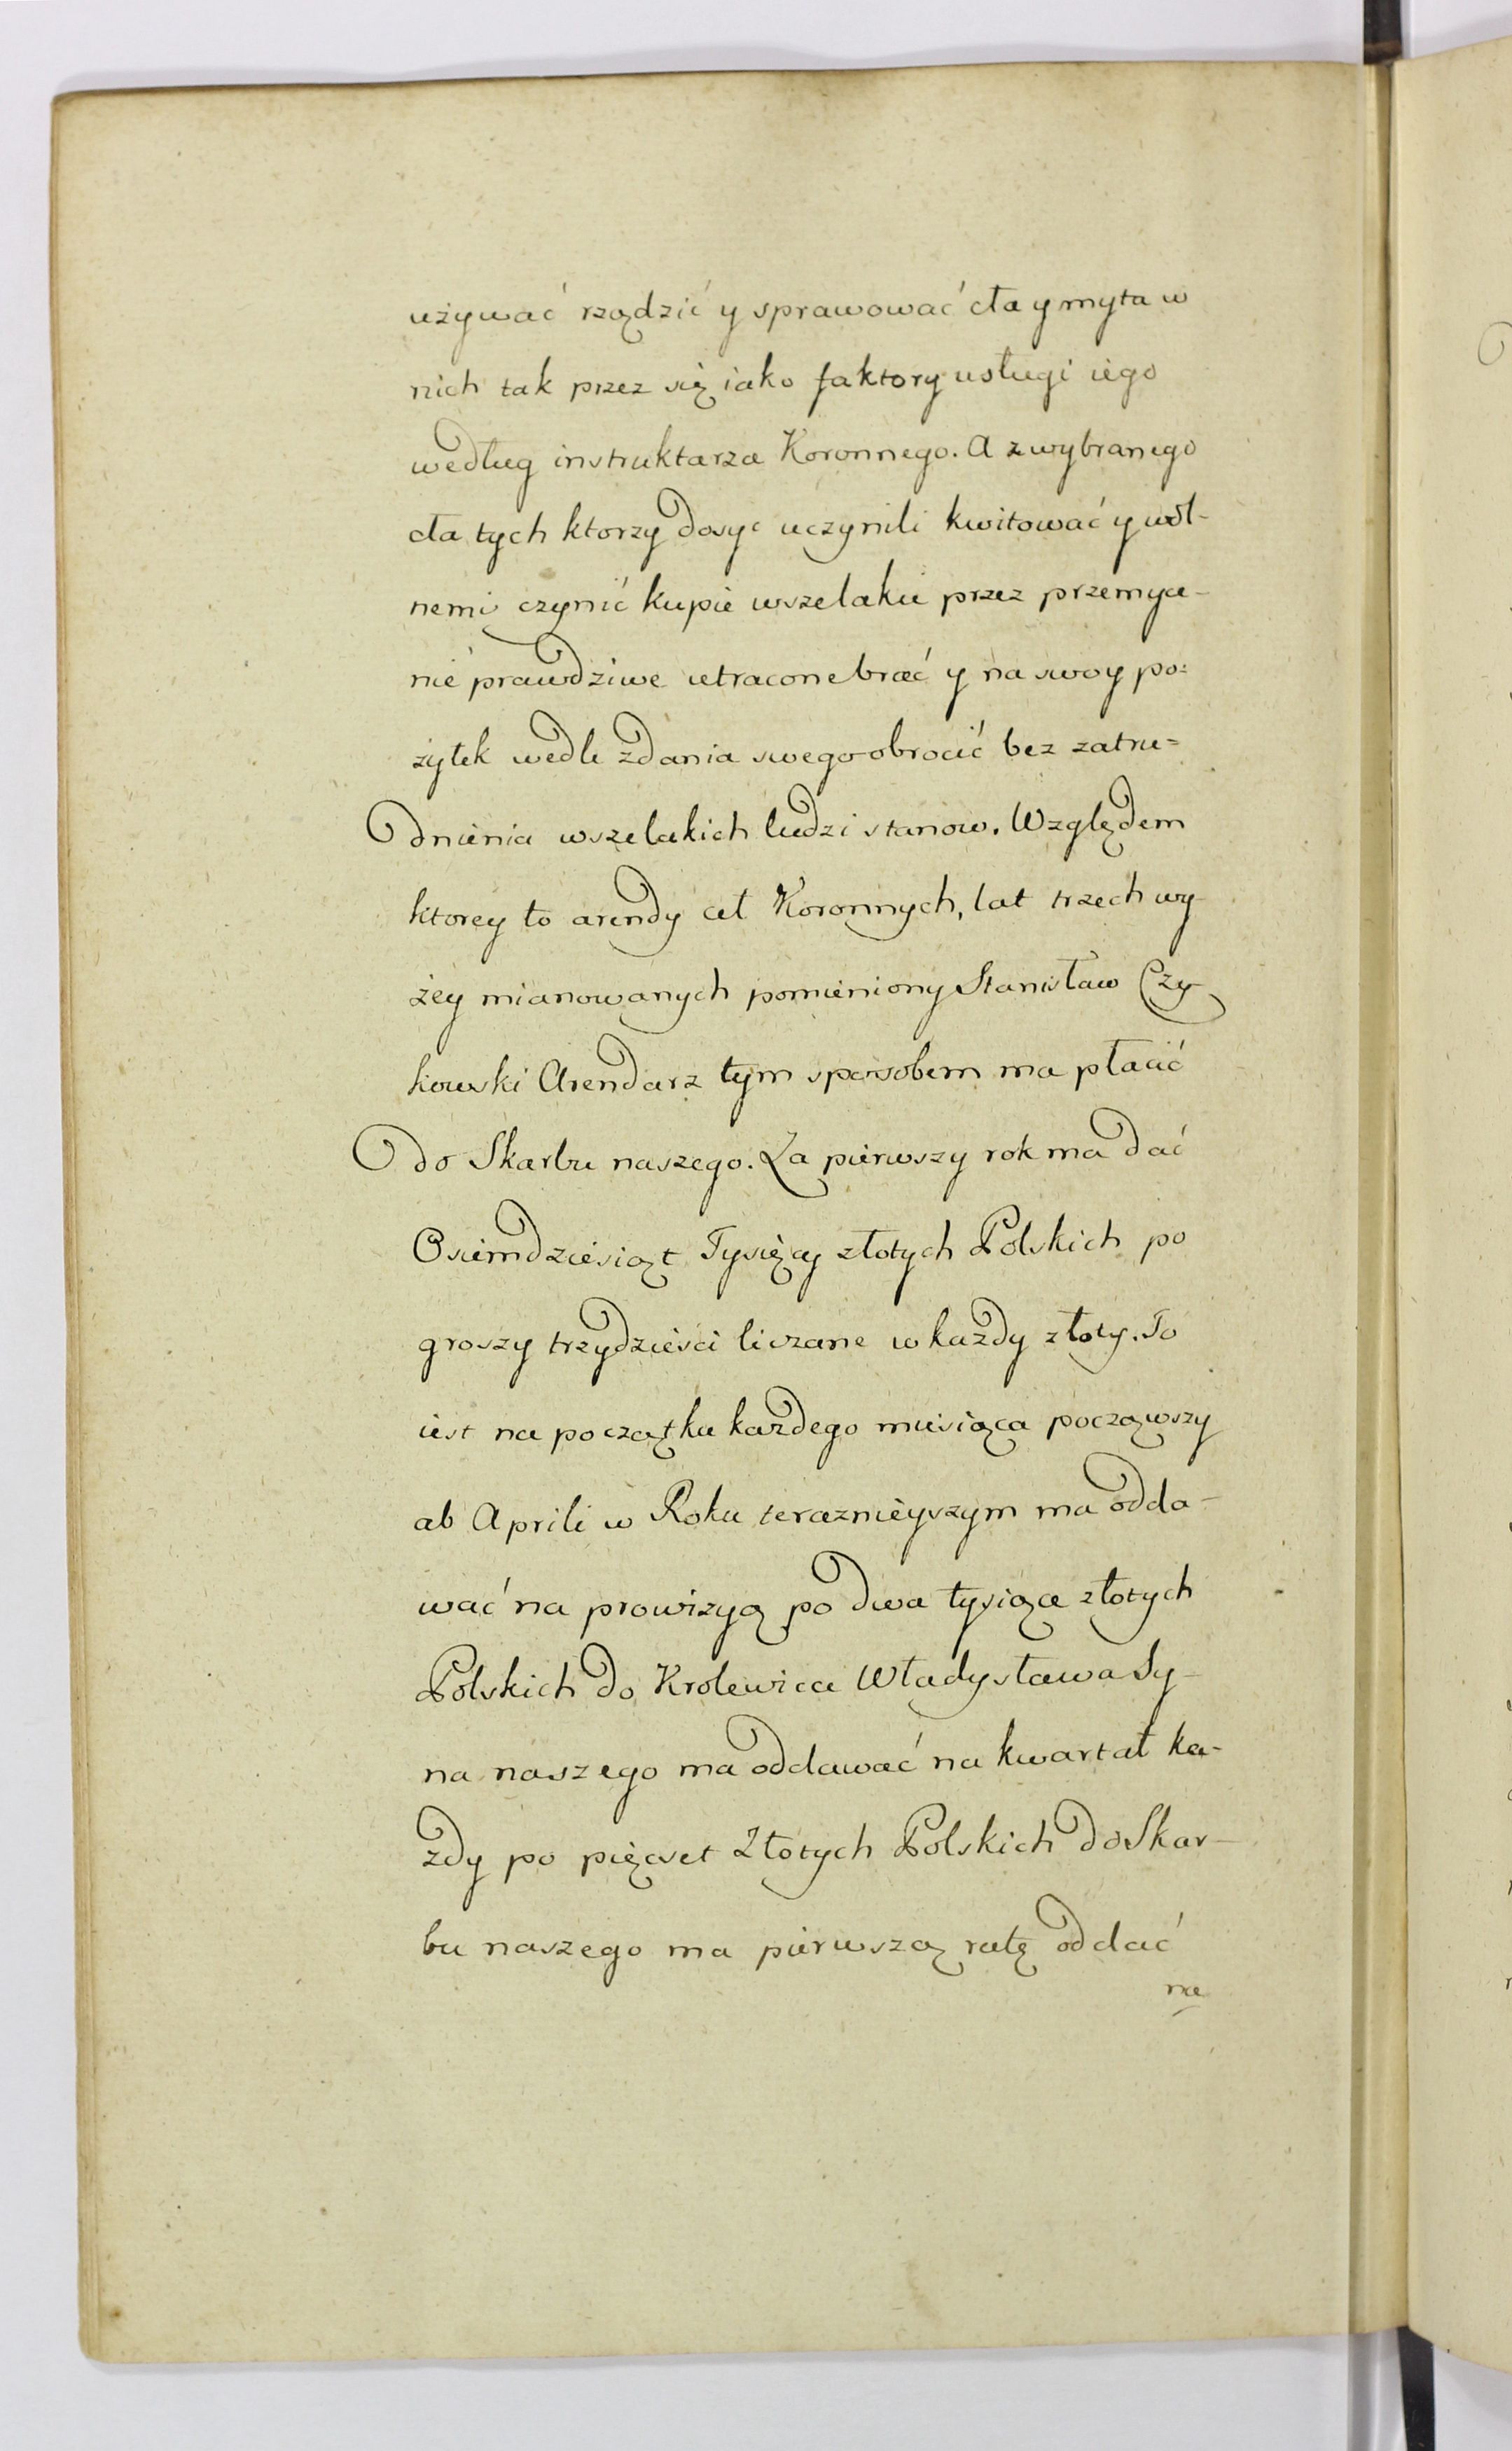 używać rządzić y sprawować cła y myta w
nich tak przez się iako faktory usługi iego
według instruktarza Koronnego. A z wybranego
cła tych ktorzy dosyc uczynili kwitować y wol-
nemi czynić kupie wszelakie przez przemyca-
nie prawdziwe utracone brać y na swoy po=
zytek wedle zdania swego obrocić bez zatru=
dnienia wszelakich ludzi stanow. Względem
ktorey to arendy ceł Koronnych, lat trzech wy
żey mianowanych pomieniony Stanisław Czy-
kowski Arendarz tym sposobem ma płacić
do Skarbu naszego. Za pierwszy rok ma dać
Osiemdziesiąt Tysięcy złotych Polskich po
groszy trzydzieści liczane w każdy złoty. To
iest na początku kazdego miesiąca począwszy
ab Aprili w Roku teraznieyszym ma odda-
wać na prowizyą po dwa tysiąca złotych
Polskich do Krolewica Władysława Sy-
na naszego ma oddawać na kwartał ka-
zdy po pięcset Złotych Polskich do Skar-
bu naszego ma pierwszą ratę oddać
na